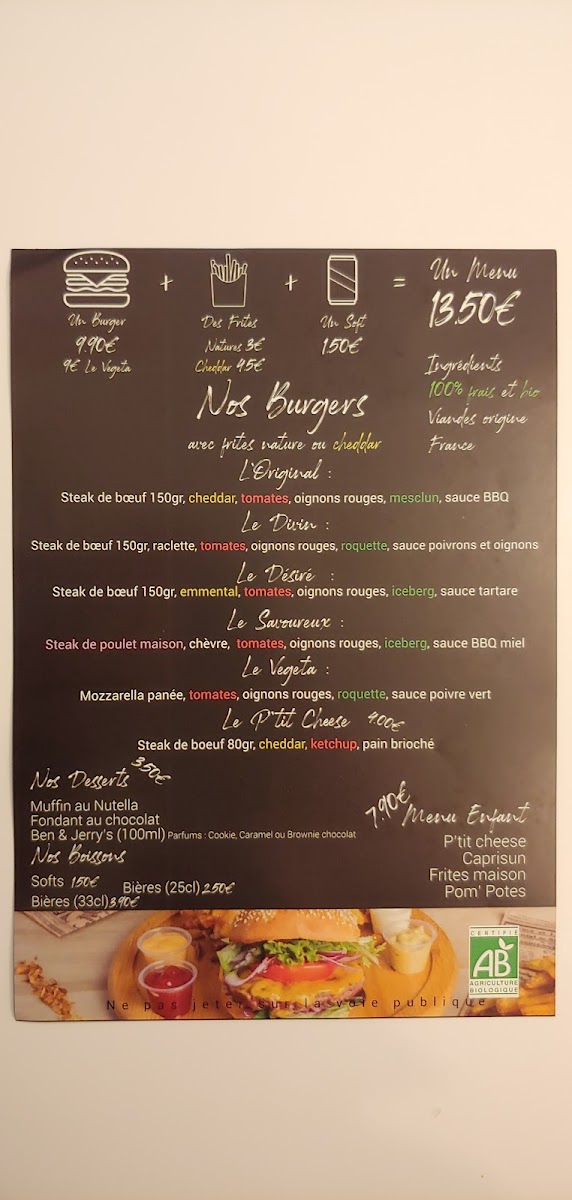 Un Burger
9.90€
9€ Le Vegeta
+
Des Frites
Natures 3€
Cheddar 4.5€
+
Un Soft
1.50€
=
Un Menu
13.50€
Ingrédients
100% frais et bio
Viandes origine
France
Nos Burgers
avec frites nature ou cheddar
L'Original :
Steak de bœuf 150gr, cheddar, tomates, oignons rouges, mesclun, sauce BBQ
Le Divin :
Steak de bœuf 150gr, raclette, tomates, oignons rouges, roquette, sauce poivrons et oignons
Le Désiré :
Steak de bœuf 150gr, emmental, tomates, oignons rouges, iceberg, sauce tartare
Le Savoureux :
Steak de poulet maison, chèvre, tomates, oignons rouges, iceberg, sauce BBQ miel
Le Vegeta :
Mozzarella panée, tomates, oignons rouges, roquette, sauce poivre vert
Le P'tit Cheese 4.00€
Steak de boeuf 80gr, cheddar, ketchup, pain brioché
Nos Desserts 3.50€
Muffin au Nutella
Fondant au chocolat
Ben & Jerry's (100ml) Parfums : Cookie, Caramel ou Brownie chocolat
Nos Boissons
Softs 1.50€
Bières (25cl) 2.50€
Bières (33cl) 3.90€
7.90€ Menu Enfant
P'tit cheese
Caprisun
Frites maison
Pom' Potes
CERTIFIÉ
AB
AGRICULTURE
BIOLOGIQUE
Ne pas jeter sur la voie publique